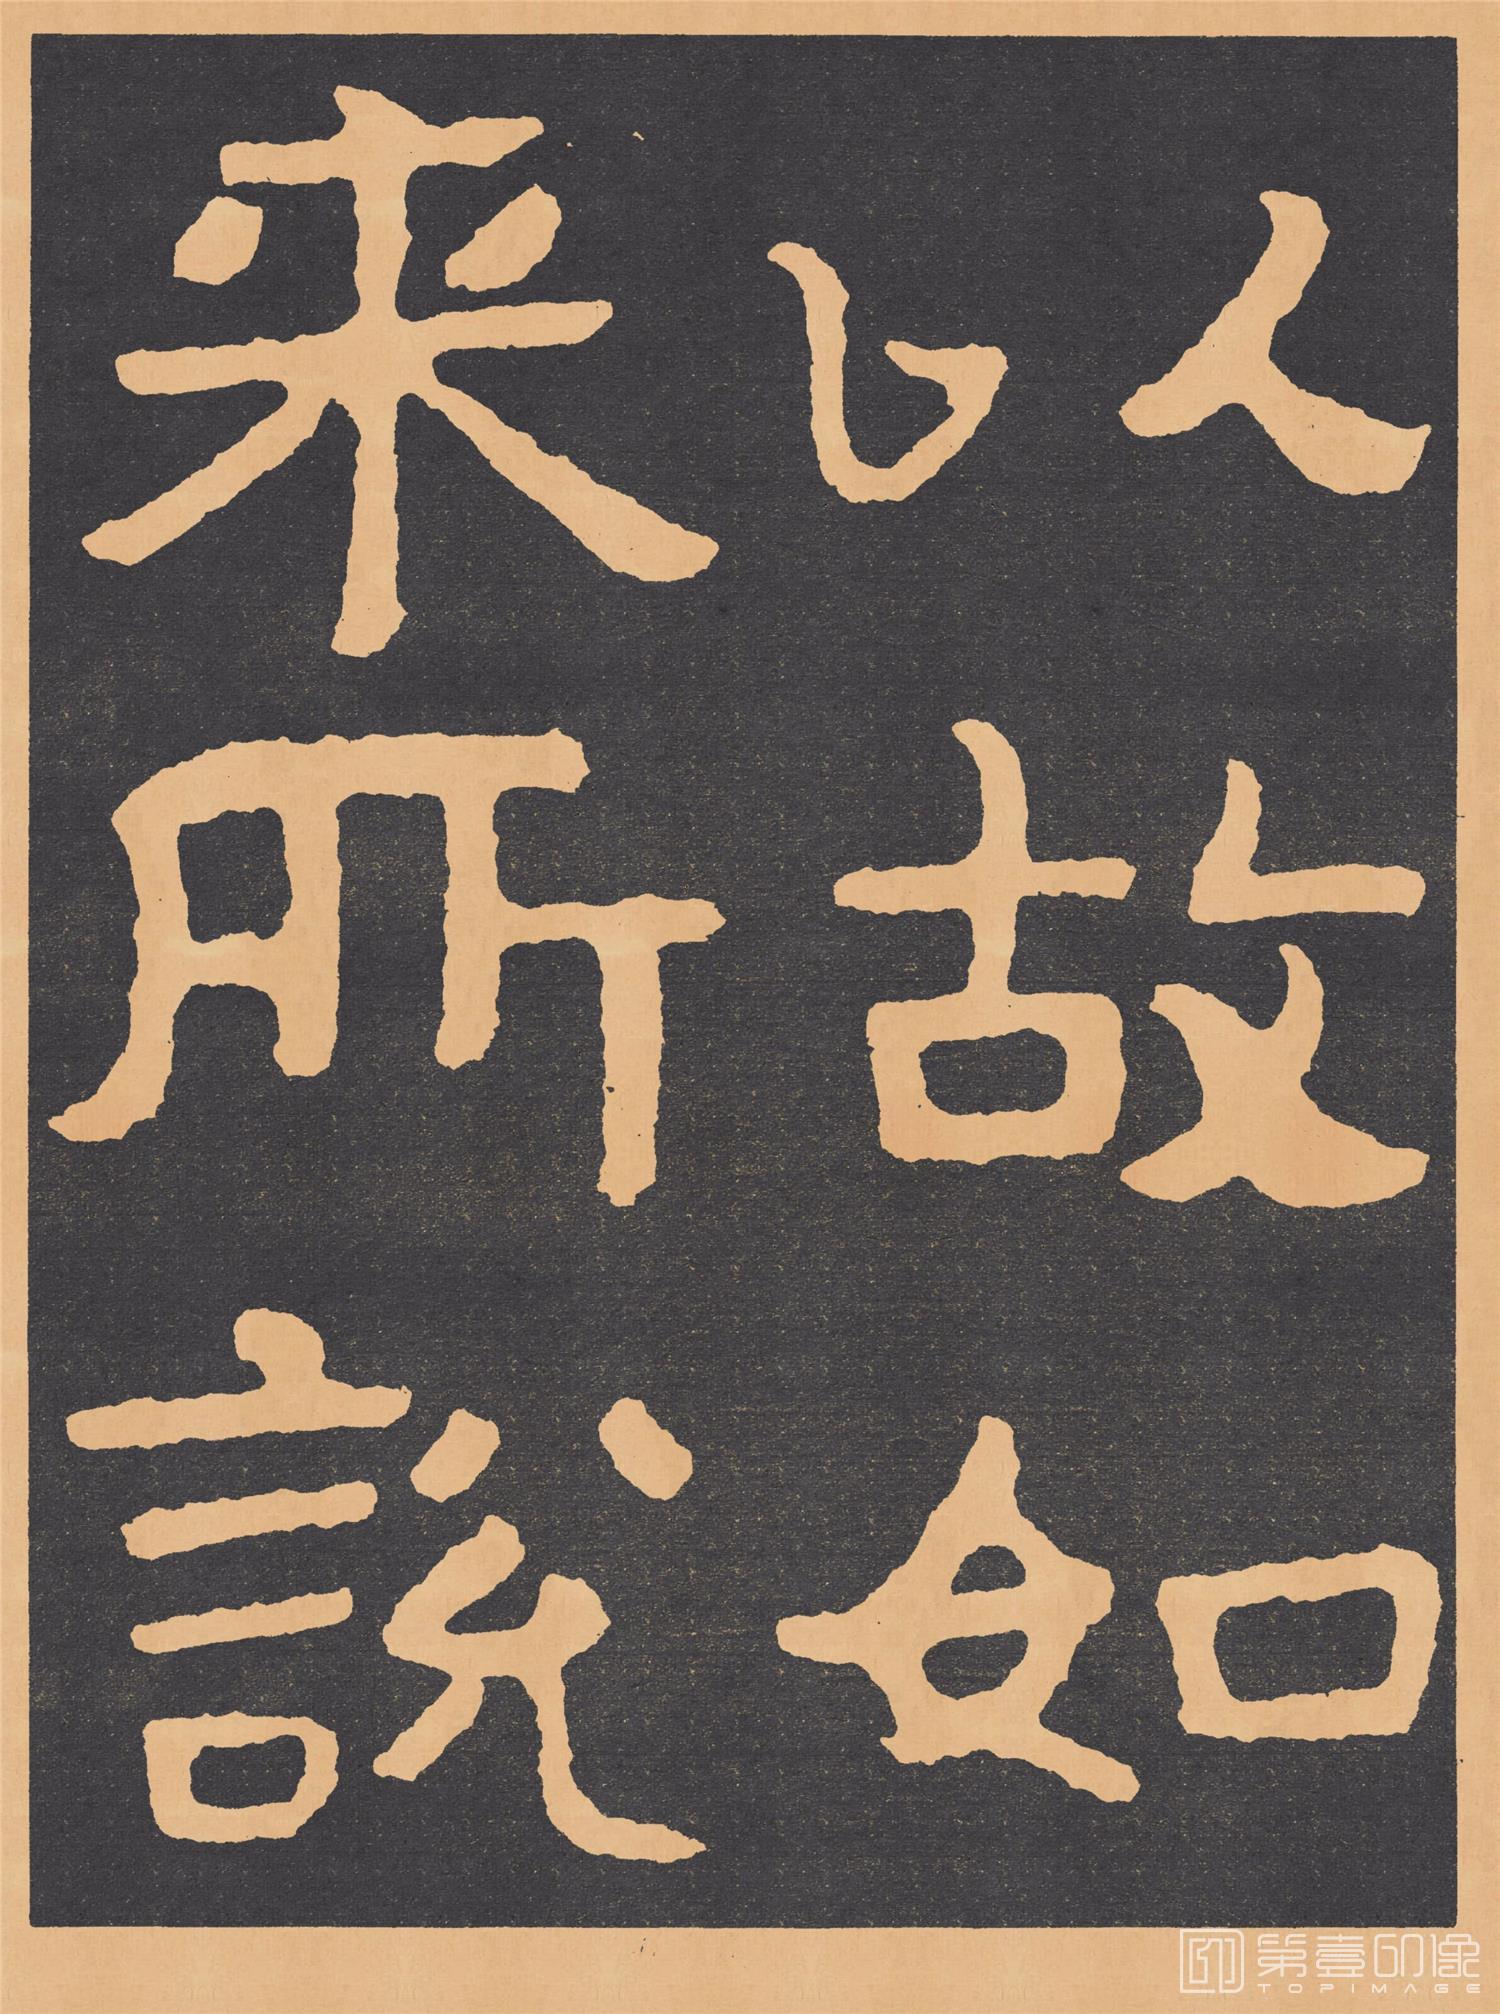 以故如
来所說
第壹印像
TOPIMAGE